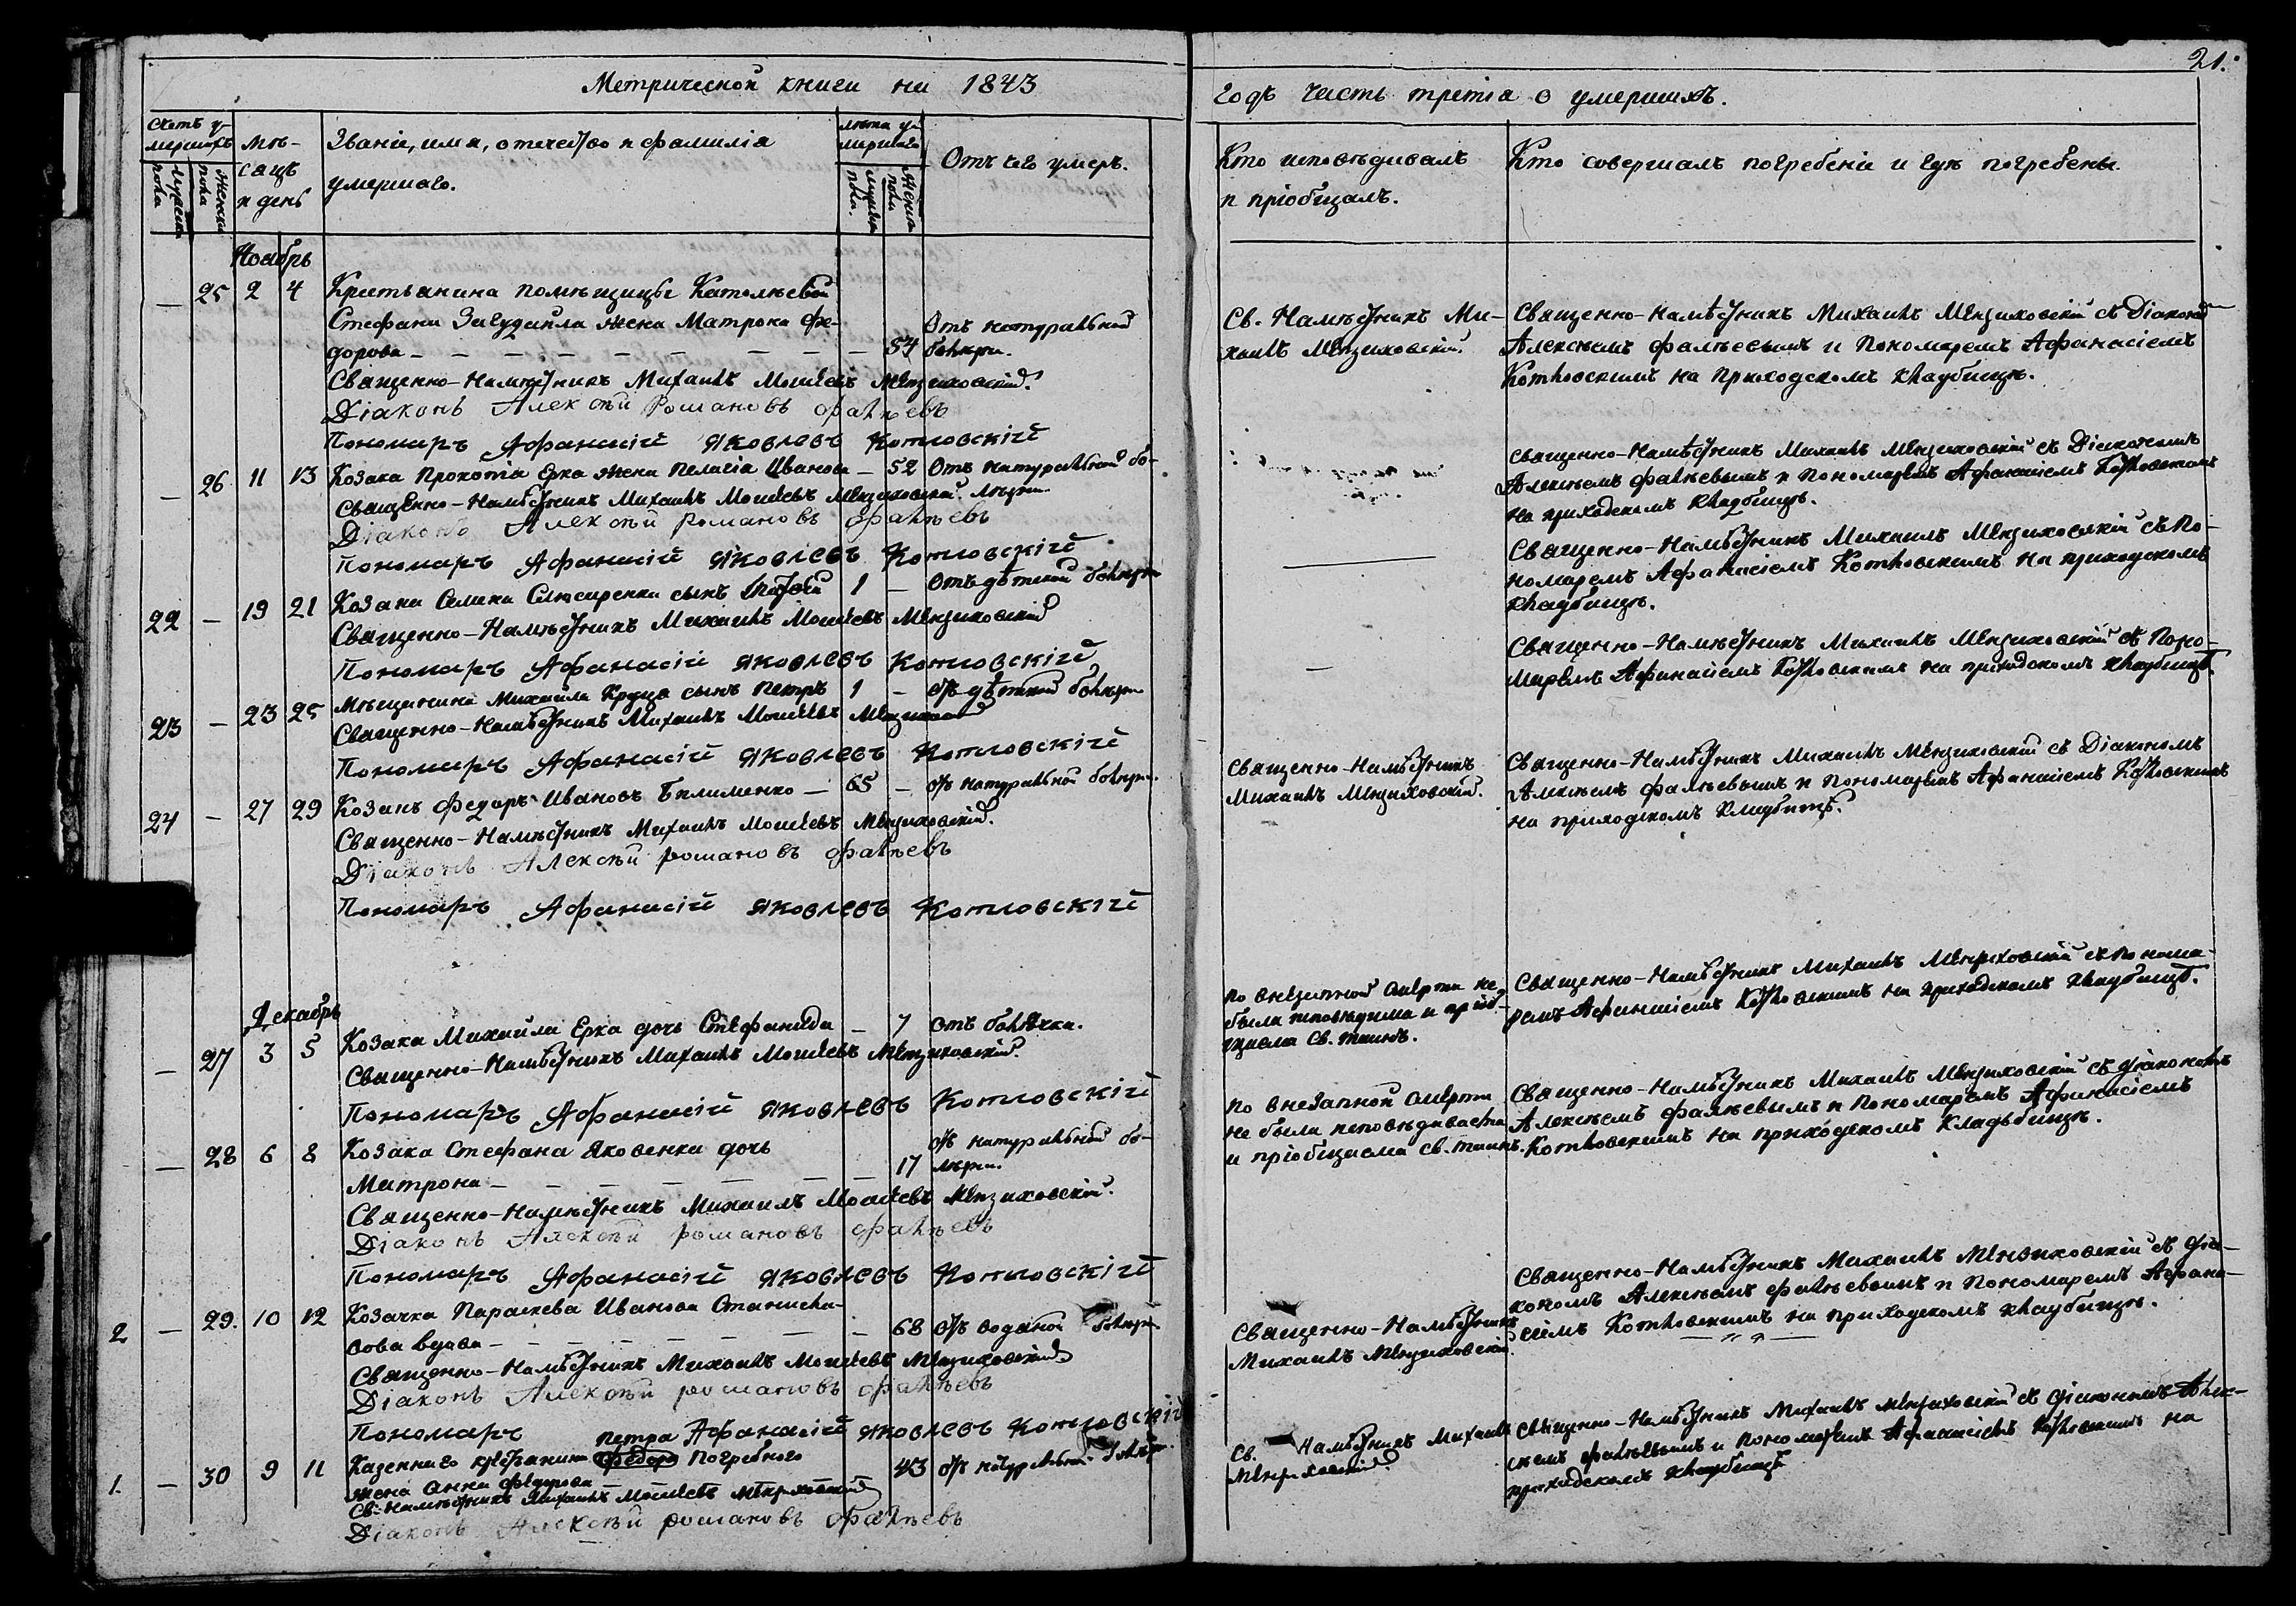 21.
Метрической книги на 1843
годъ часть третія о умершихъ.
Счетъ умершихъ
Мужеска пола
Женска пола
Мѣсяцъ и день
Званіе, имя, отечество и фамилія
умершаго.
лѣта умершаго
Мужеска пола.
Женска пола
Отъ чего умеръ.
Кто исповѣдивалъ
и пріобщалъ.
Кто совершалъ погребеніе и гдѣ погребены.
Ноябрь
— 25 2 4 Крестьянина помѣщицы
Стефана жена Матрона Фе-
дорова — 54 Отъ натуральной болѣзни.
Священно-Намѣстникъ Михаилъ Моисеевъ Мензиховскій.
Діаконъ Алексѣй Романовъ Фалѣевъ
Пономаръ Афанасій Яковлевъ Котловскій
Св. Намѣстникъ Ми-
хаилъ Мензиховскій.
Священно-Намѣстникъ Михаилъ Мензиховскій съ Діакономъ
Алексѣемъ Фалѣевымъ и Пономаремъ Афанасіемъ
Котловскимъ на приходскомъ кладбищѣ.
— 26 11 13 Козака Прокопія Ерка жена Пелагія Иванова — 52 Отъ натуральной бо-
лѣзни
Священно-Намѣстникъ Михаилъ Моисеевъ Мензиховскій.
Діаконъ Алексѣй Романовъ Фалѣевъ
Пономаръ Афанасій Яковлевъ Котловскій
Священно-Намѣстникъ Михаилъ Мензиховскій съ Діакономъ
Алексѣемъ Фалѣевымъ и Пономаремъ Афанасіемъ Котловскимъ
на приходскомъ кладбищѣ.
22 — 19 21 Козака сынъ 1 — Отъ дѣтской болѣзни
Священно-Намѣстникъ Михаилъ Моисеевъ Мензиховскій
Пономаръ Афанасій Яковлевъ Котловскій
Священно-Намѣстникъ Михаилъ Мензиховскій съ По-
номаремъ Афанасіемъ Котловскимъ на приходскомъ
кладбищѣ.
23 — 23 25 Мѣщанина Михайла сынъ Петръ 1 — отъ дѣтской болѣзни
Священно-Намѣстникъ Михаилъ Моисеевъ Мензиховскій
Пономаръ Афанасій Яковлевъ Котловскій
Священно-Намѣстникъ Михаилъ Мензиховскій съ Поно-
маремъ Афанасіемъ Котловскимъ на приходскомъ кладбищѣ.
24 — 27 29 Козакъ Федоръ Ивановъ Билименко — 65 — отъ натуральной болѣзни.
Священно-Намѣстникъ Михаилъ Моисеевъ Мензиховскій.
Діаконъ Алексѣй Романовъ Фалѣевъ
Пономаръ Афанасій Яковлевъ Котловскій
Священно-Намѣстникъ
Михаилъ Мензиховскій.
Священно-Намѣстникъ Михаилъ Мензиховскій съ Діакономъ
Алексѣемъ Фалѣевымъ и Пономаремъ Афанасіемъ Котловскимъ
на приходскомъ кладбищѣ.
Декабрь
— 27 3 5 Козака Михайла Ерка дочь Стефанида — 7 отъ болячки.
Священно-Намѣстникъ Михаилъ Моисеевъ Мензиховскій.
Пономаръ Афанасій Яковлевъ Котловскій
По внезапной смерти не
была исповѣдима и пріоб-
щаема Св. таинъ.
Священно-Намѣстникъ Михаилъ Мензиховскій съ Понома-
ремъ Афанасіемъ Котловскимъ на приходскомъ кладбищѣ.
— 28 6 8 Козака Стефана Яковенка дочь
Матрона — 17 отъ натуральной болѣзни.
Священно-Намѣстникъ Михаилъ Моисеевъ Мензиховскій.
Діаконъ Алексѣй Романовъ Фалѣевъ
Пономаръ Афанасій Яковлевъ Котловскій
По внезапной смерти
не была исповѣдиваема
и пріобщаема св. таинъ.
Священно-Намѣстникъ Михаилъ Мензиховскій съ Діакономъ
Алексѣемъ Фалѣевымъ и Пономаремъ Афанасіемъ
Котловскимъ на приходскомъ кладьбищѣ.
2 — 29. 10 12 Козачка Параскева Иванова Станисла-
вова вдова — 68 отъ водяной болѣзни
Священно-Намѣстникъ Михаилъ Моисеевъ Мензиховскій
Діаконъ Алексѣй Романовъ Фалѣевъ
Пономаръ Афанасій Яковлевъ Котловскій
Священно-Намѣстникъ
Михаилъ Мензиховскій.
Священно-Намѣстникъ Михаилъ Мензиховскій съ Діа-
кономъ Алексѣемъ Фалѣевымъ и Пономаремъ Афана-
сіемъ Котловскимъ на приходскомъ кладбищѣ.
1. — 30 9 11 Казеннаго крестьянина Петра Погребного
жена Анна Федорова 43 отъ натуральной болѣзни.
Св. Намѣстникъ Михаилъ Моисеевъ Мензиховскій
Діаконъ Алексѣй Романовъ Фалѣевъ
Св. Намѣстникъ Михаилъ
Мензиховскій.
Священно-Намѣстникъ Михаилъ Мензиховскій съ Діакономъ Алек-
сѣемъ Фалѣевымъ и Пономаремъ Афанасіемъ Котловскимъ на
приходскомъ кладбищѣ